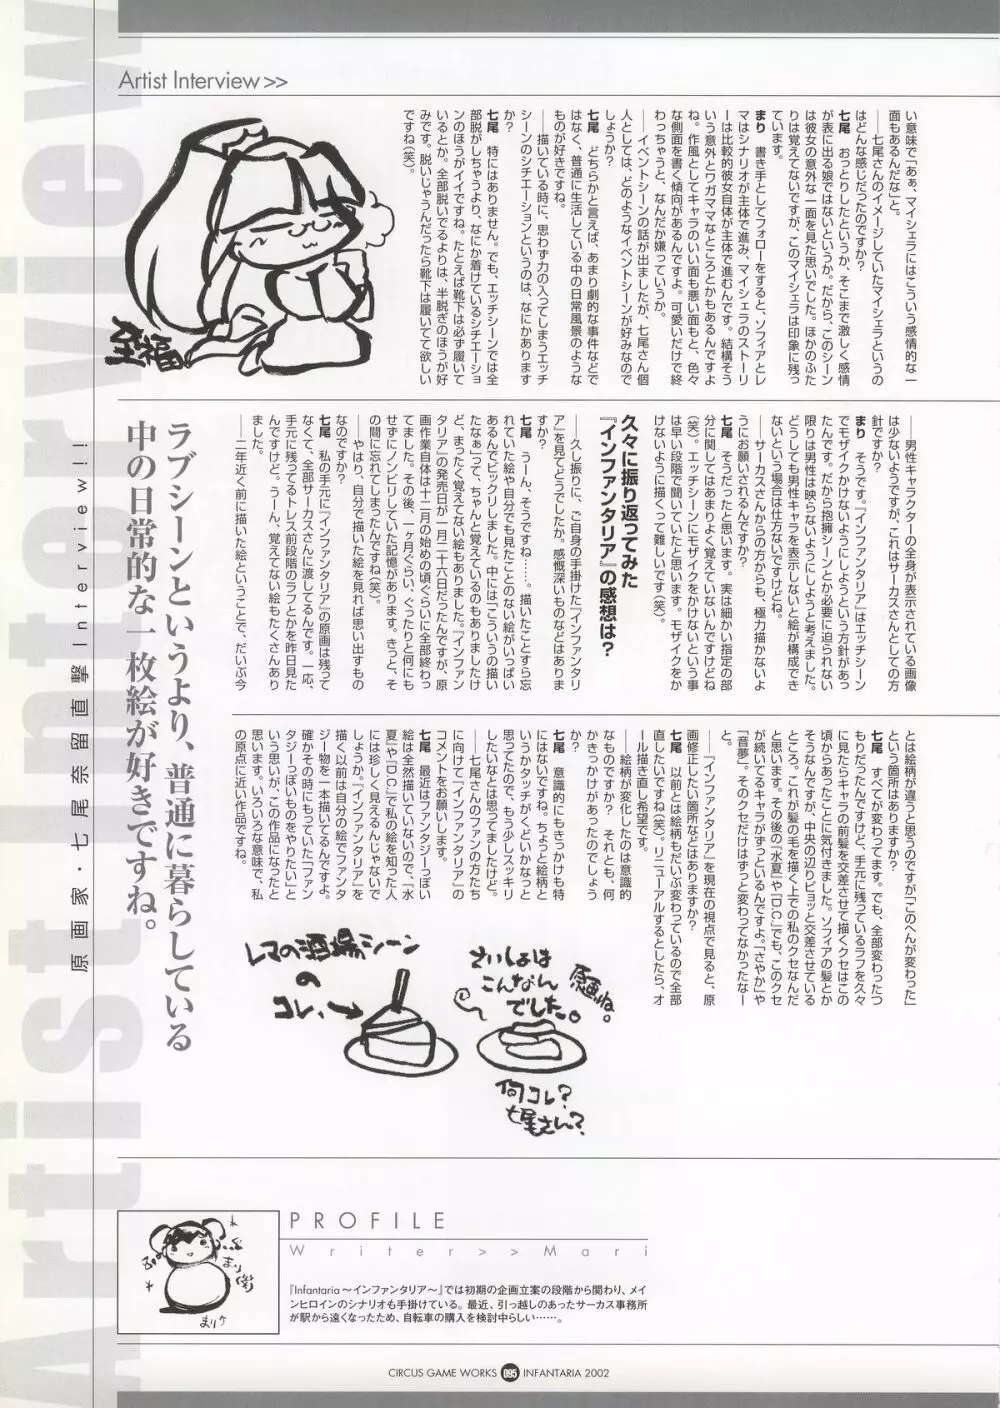 Artist Interview>>
い意味で「あぁ、マイシェラにはこういう感情的な一
面もあるんだな」と。
――七尾さんのイメージしていたマイシェラというの
はどんな感じだったのですか？
七尾　おっとりしたというか、そこまで激しく感情
が表に出る娘ではないというか。だから、このシーン
は彼女の意外な一面を見た思いでした。ほかのふた
りは覚えてないですが、このマイシェラは印象に残っ
ています。
まり　書き手としてフォローをすると、ソフィアとレ
マはシナリオが主体で進み、マイシェラのストーリ
ーは比較的彼女自体が主体で進むんです。結構そう
いう意外とワガママなところとかもあるんですよ
ね。作風としてキャラのいい面も悪い面もと、色々
な側面を書く傾向があるんですよ。可愛いだけで終
わっちゃうと、なんだか嫌っていうか。
――イベントシーンの話が出ましたが、七尾さん個
人としては、どのようなイベントシーンが好みなので
しょうか？
七尾　どちらかと言えば、あまり劇的な事件などで
はなく、普通に生活している中の日常風景のような
ものが好きですね。
――描いている時に、思わず力の入ってしまうエッチ
シーンのシチエーションというのは、なにかあります
か？
七尾　特にはありません。でも、エッチシーンでは全
部脱がしちゃうより、なにか着けているシチエーショ
ンのほうがイイですね。たとえば靴下は必ず履いて
いるとか。全部脱いでるよりは、半脱ぎのほうが好
みです。脱いじゃうんだったら靴下は履いてて欲しい
ですね（笑）。
至福
――男性キャラクターの全身が表示されている画像
は少ないようですが、これはサーカスさんとしての方
針ですか？
まり　そうです。『インファンタリア』はエッチシーン
でモザイクかけないようにしようという方針があっ
たんです。だから抱擁シーンとか必要に迫られない
限りは男性は映らないようにしようと考えました。
どうしても男性キャラを表示しないと絵が構成でき
ないという場合は仕方ないですけどね。
――サーカスさんからの方からも、極力描かないよ
うにお願いされるんですか？
七尾　そうだったと思います。実は細かい指定の部
分に関してはあまりよく覚えていないんですけどね
（笑）。エッチシーンにモザイクをかけないという事
は早い段階で聞いていたと思います。モザイクをか
けないように描くって難しいです（笑）。
久々に振り返ってみた
『インファンタリア』の感想は？
――久し振りに、ご自身の手掛けた『インファンタリ
ア』を見てどうでしたか。感慨深いものなどはありま
すか？
七尾　うーん、そうですね……。描いたことすら忘
れていた絵や自分でも見たことのない絵がいっぱい
あるんでビックリしました。中には「こういうの描い
たなぁ」って、ちゃんと覚えているのもありましたけ
ど、まったく覚えてない絵もありました。『インファン
タリア』の発売日が一月二十六日だったんですが、原
画作業自体は十二月の始めの頃ぐらいに全部終わっ
てました。その後、一ヶ月ぐらい、ぐったりと何にも
せずにノンビリしていた記憶があります。きっと、そ
の間に忘れてしまったんですね（笑）。
――やはり、自分で描いた絵を見れば思い出すもの
なのですか？
七尾　私の手元に『インファンタリア』の原画は残って
なくて、全部サーカスさんに渡してるんです。一応、
手元に残ってるトレス前段階のラフとかを昨日見た
んですけど。うーん、覚えてない絵もたくさんあり
ました。
――二年近く前に描いた絵ということで、だいぶ今
ラブシーンというより、普通に暮らしている
中の日常的な一枚絵が好きですね。
とは絵柄が違うと思うのですが「このへんが変わった」
という箇所はありますか？
七尾　すべてが変わってます。でも、全部変わったつ
もりだったんですけど、手元に残っているラフを久々
に見たらキャラの前髪を交差させて描くクセはこの
頃からあったことに気付きました。ソフィアの髪とか
そうなんですが、中央の辺りピョッと交差させている
ところ。これが髪の毛を描く上での私のクセなんだ
と思います。その後の『水夏』や『D.C.』でも、このクセ
が続いてるキャラがずっといるんですよ。「さやか」や
「音夢」。そのクセだけはずっと変わってなかったなー
と。
――『インファンタリア』を現在の視点で見ると、原
画修正したい箇所などはありますか？
七尾　以前とは絵柄もだいぶ変わっているので全部
直したいですね（笑）。リニューアルするとしたら、オ
ール描き直し希望です。
――絵柄が変化したのは意識的
なものですか？　それとも、何
かきっかけがあったのでしょう
か？
七尾　意識的にもきっかけも特
にはないですね。ちょっと絵柄と
いうかタッチがくどいかなっと
思ってたので、もう少しスッキリ
したいなとは思ってましたけど。
――七尾さんのファンの方たち
に向けて『インファンタリア』の
コメントをお願いします。
七尾　最近はファンタジーっぽい
絵は全然描いていないので、『水
夏』や『D.C.』で私の絵を知った人
には珍しく見えるんじゃないで
しょうか。『インファンタリア』を
描く以前は自分の絵でファンタ
ジー物を一本描いてるんですよ。
確かその時にもっていた「ファン
タジーっぽいものをやりたい」と
いう思いが、この作品になったと
思います。いろいろな意味で、私
の原点に近い作品ですね。
レマの酒場シーン
の
コレ、→
さいしょは
こんなん
でした。
原画ね。
何コレ？
七尾さん？
原画家・七尾奈留直撃Interview!!
Artist Interview
まり
PROFILE
Writer>>Mari
『Infantaria～インファンタリア～』では初期の企画立案の段階から関わり、メイ
ンヒロインのシナリオも手掛けている。最近、引っ越しのあったサーカス事務所
が駅から遠くなったため、自転車の購入を検討中らしい……。
CIRCUS GAME WORKS 095 INFANTARIA 2002